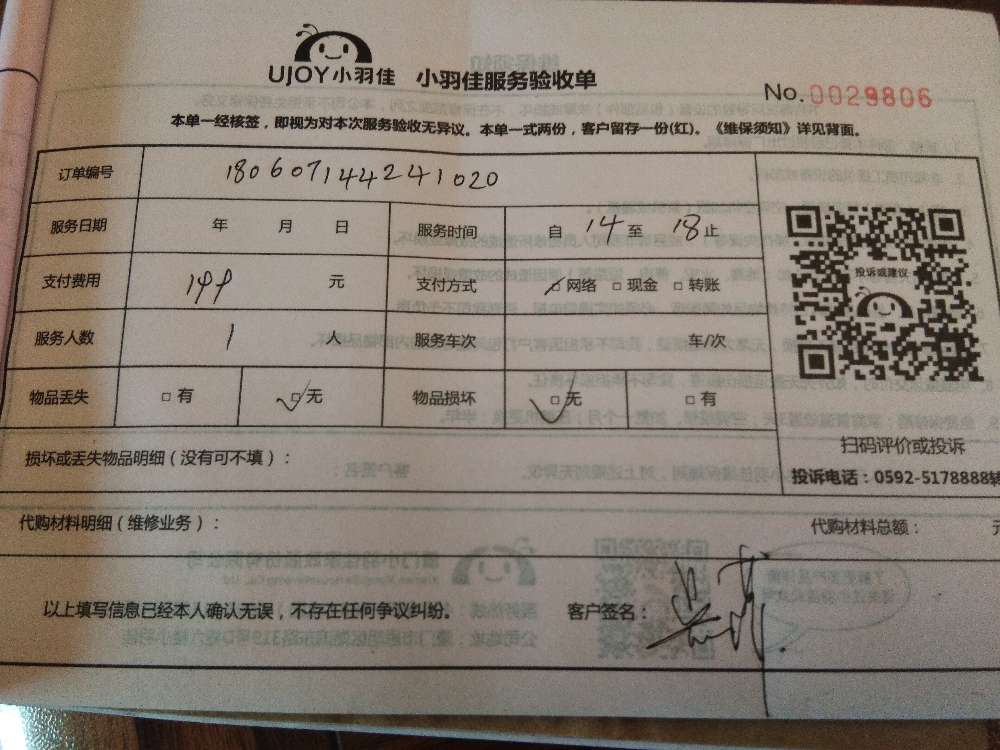 UJOY小羽佳 小羽佳服务验收单
No. 0029806
本单一经核签，即视为对本次服务验收无异议。本单一式两份，客户留存一份(红)。《维保须知》详见背面。
订单编号 180607144241020
服务日期 年 月 日 服务时间 自 14 至 18 止
支付费用 199 元 支付方式 ☑网络 □现金 □转账
服务人数 1 人 服务车次 车/次
物品丢失 □有 ☑无 物品损坏 ☑无 □有
投诉或建议
扫码评价或投诉
投诉电话：0592-5178888转
损坏或丢失物品明细（没有可不填）：
代购材料明细（维修业务）： 代购材料总额： 元
以上填写信息已经本人确认无误，不存在任何争议纠纷。 客户签名：